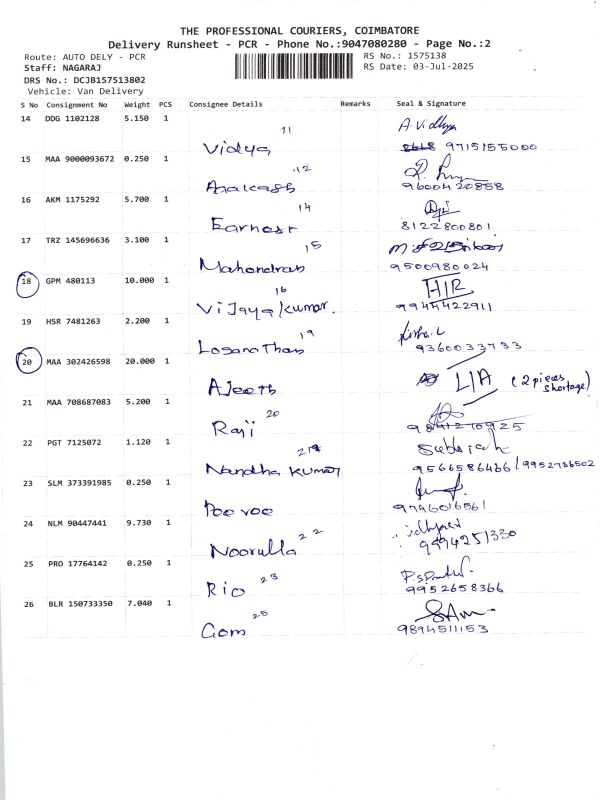 THE PROFESSIONAL COURIERS, COIMBATORE
Delivery Runsheet - PCR - Phone No.:9047080280 - Page No.:2
Route: AUTO DELY - PCR RS No.: 1575138
Staff: NAGARAJ RS Date: 03-Jul-2025
DRS No.: DCJB157513802
Vehicle: Van Delivery
S No Consignment No Weight PCS Consignee Details Remarks Seal & Signature
14 DDG 1102128 5.150 1
11 A. Vidhya
Vidya 9715155000
15 MAA 9000093672 0.250 1
12
9600420858
16 AKM 1175292 5.700 1
14
Earnest 8122800801
17 TRZ 145696636 3.100 1
15
Mahendran 9500980024
18 GPM 480113 10.000 1
16 H/R
Vijaya kumar. 9944422911
19 HSR 7481263 2.200 1
19
9360033733
20 MAA 302426598 20.000 1
Ajeeth L/A (2 pieces shortage)
21 MAA 708687083 5.200 1
20
Raji 9841210925
22 PGT 7125072 1.120 1
21
Nandha Kumar 9566586466/9952736502
23 SLM 373391985 0.250 1
9746016561
24 NLM 90447441 9.730 1
22
Noorulla 9994251330
25 PRO 17764142 0.250 1
23
Rio 9952658366
26 BLR 150733350 7.040 1
25
Gom 9894511153